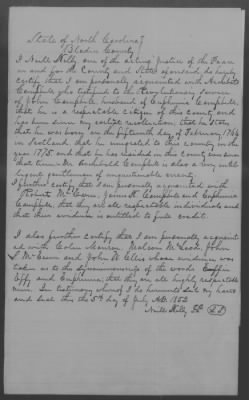 State of North Carolina
Bladen County
I Neill Kelly one of the acting justices of the Peace
in and for the County and State aforesaid do hereby
certify that I am personally acquainted with Archibald
Campbell who testified to the Revolutionary Services
of John Campbell, husband of Euphemia Campbell,
that he is a respectable citizen of this county and
has been during my earliest recollection; that he States
that he was born on the fifteenth day of February 1764
in Scotland that he emigrated to this country in the
year 1775 and that he has resided in this county ever since
that time. Mr Archibald Campbell is also a very intel-
ligent gentleman of unquestionable veracity.
I further certify that I am personally acquainted with
Campbell, that they are respectable individuals and
that their evidence is entitled to full credit.
I also further certify that I am personally acquaint-
ed with Colin Monroe, Malcom McLeod, John
McEwen and John W. Ellis whose evidence was
taken as to the synonymousness of the words
Effy and Euphemia, that they are all highly respectable
men. In testimony whereof I do hereunto set my hand
and seal this the 5th day of July A.D. 1852
Neill Kelly